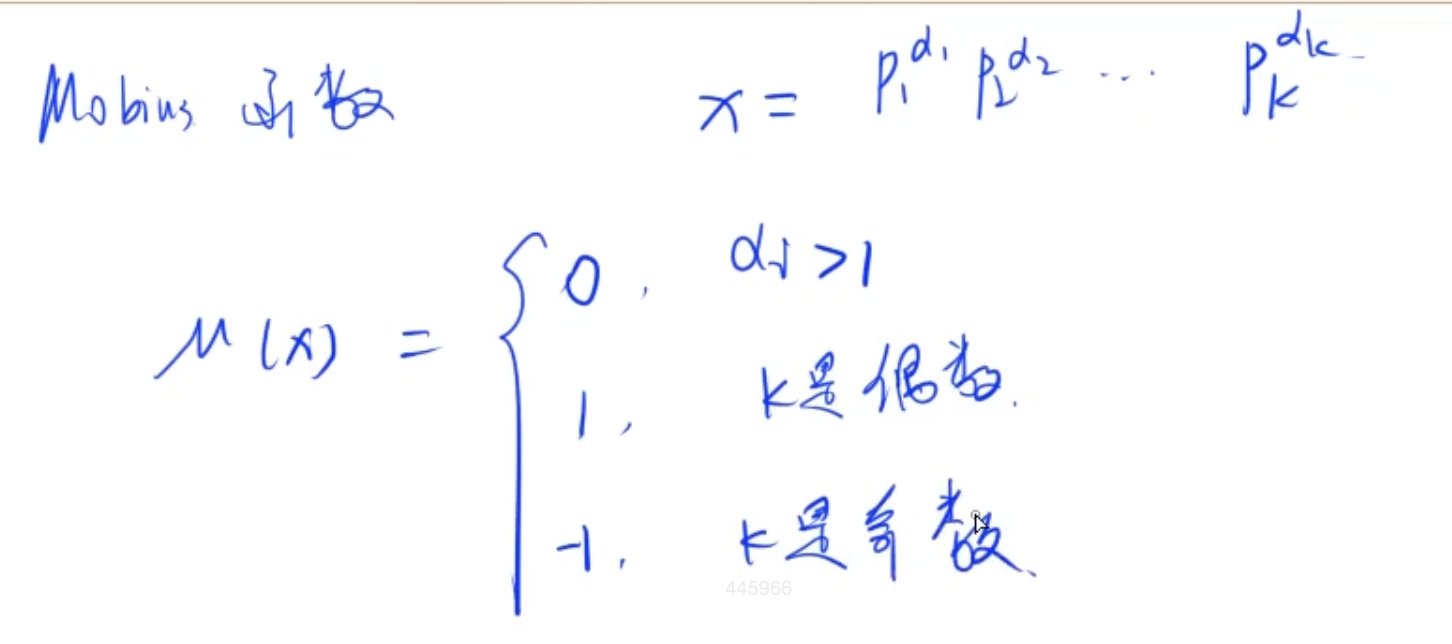 Mobius 函数 x = p₁^α₁ p₂^α₂ ... p_k^α_k
μ(x) = { 0, αᵢ > 1
1, k是偶数.
-1, k是奇数.
445966